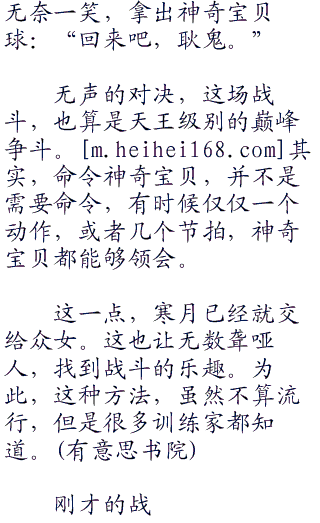 无奈一笑，拿出神奇宝贝
球：“回来吧，耿鬼。”
无声的对决，这场战
斗，也算是天王级别的巅峰
争斗。[m.heihei168.com]其
实，命令神奇宝贝，并不是
需要命令，有时候仅仅一个
动作，或者几个节拍，神奇
宝贝都能够领会。
这一点，寒月已经就交
给众女。这也让无数聋哑
人，找到战斗的乐趣。为
此，这种方法，虽然不算流
行，但是很多训练家都知
道。(有意思书院)
刚才的战